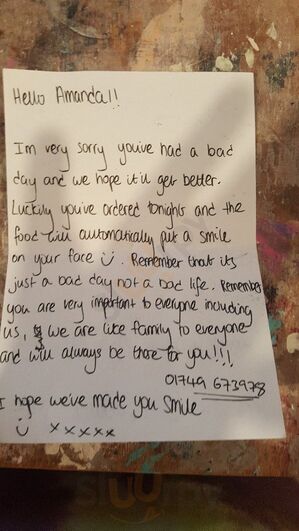 Hello Amanda!!
Im very sorry youve had a bad
day and we hope it'll get better.
Luckily you've ordered tonights and the
food will automatically put a smile
on your face ü. Remember that its
just a bad day not a bad life. Remember
you are very important to everyone including
us, we are like family to everyone
and will always be there for you!!!
01749 673978
I hope we've made you smile
ü xxxxx